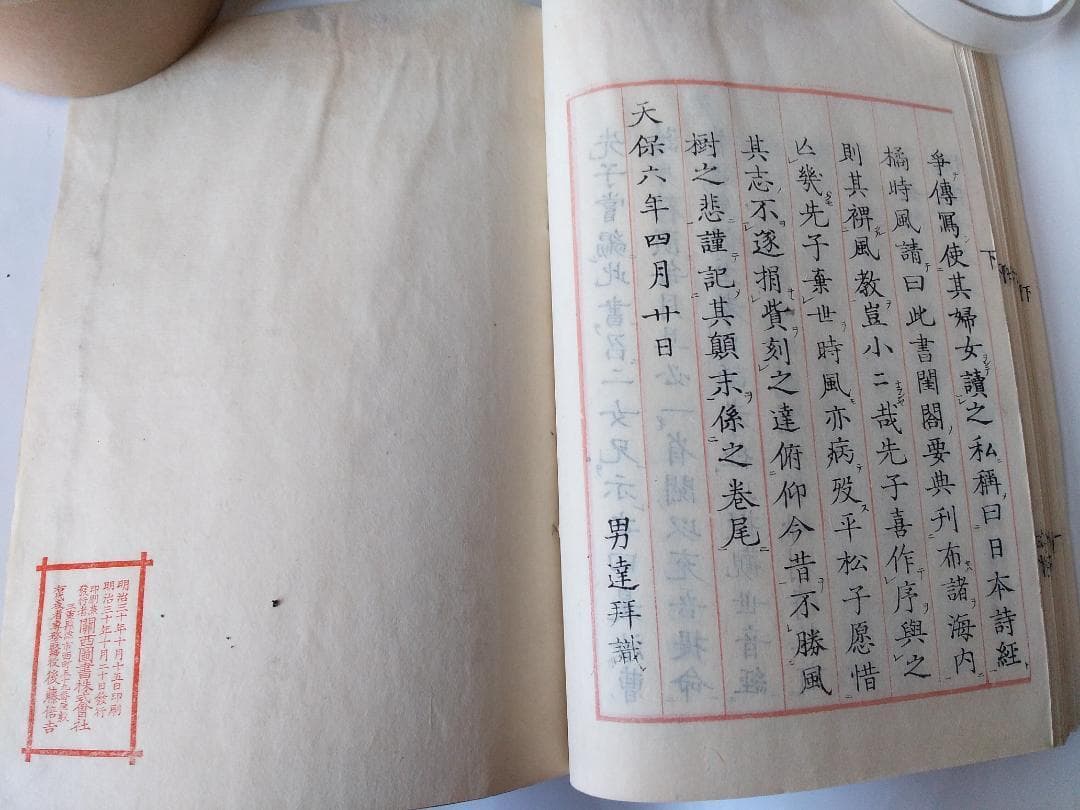 爭傳寫使其婦女讀之私稱曰日本詩經
橘時風請曰此書閨閤要典刊布諸海内
則其裨風教豈小ニ哉先子喜作序與之
亾幾先子棄世時風亦病歿平松子愿惜
其志不遂捐貲刻之達俯仰今昔不勝風
樹之悲謹記其顛末係之卷尾
天保六年四月廿日
男達拜識
明治三十年十月十五日印刷
明治三十年十月二十日發行
印刷兼發行者
關西圖書株式會社
後藤